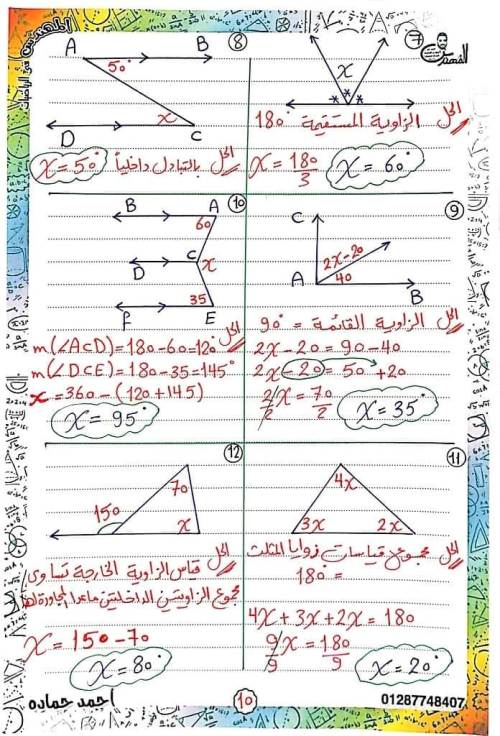 المهندس في الرياضيات
المهندس
٧
x
* * *
الحل الزاوية المستقيمة 180°
x = 180/3
x = 60°
8
A B
50°
x
D C
الحل بالتبادل داخلياً
x = 50°
٩
C
2x-20
40
A B
الحل الزاوية القائمة = 90°
2x - 20 = 90 - 40
2x - 20 = 50 + 20
2/2 x = 70/2
x = 35°
10
B A
60
D C x
35
F E
الحل
m(∠ACD) = 180 - 60 = 120°
m(∠DCE) = 180 - 35 = 145°
x = 360 - (120 + 145)
x = 95°
11
4x
3x 2x
الحل مجموع قياسات زوايا المثلث
= 180°
4x + 3x + 2x = 180
9/9 x = 180/9
x = 20°
12
70
150 x
الحل قياس الزاوية الخارجة تساوى
مجموع الزاويتين الداخليتين ماعدا المجاورة لها
x = 150 - 70
x = 80°
احمد حماده
١٥
01287748407